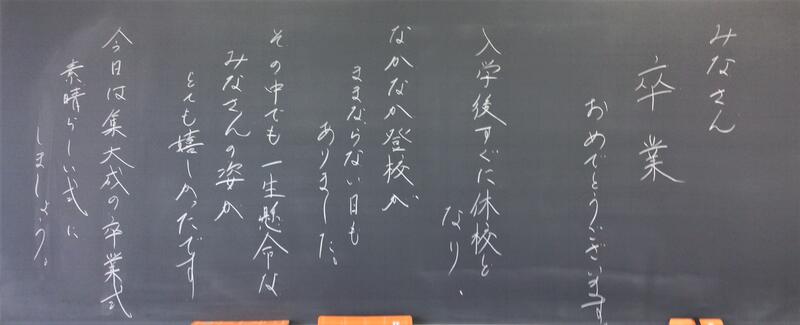 みなさん
卒業
おめでとうございます。
入学後すぐに休校と
なり、
なかなか登校が
ままならない日も
ありました。
その中でも一生懸命な
みなさんの姿が
とても嬉しかったです
今日は集大成の卒業式
素晴らしい式に
しましょう。